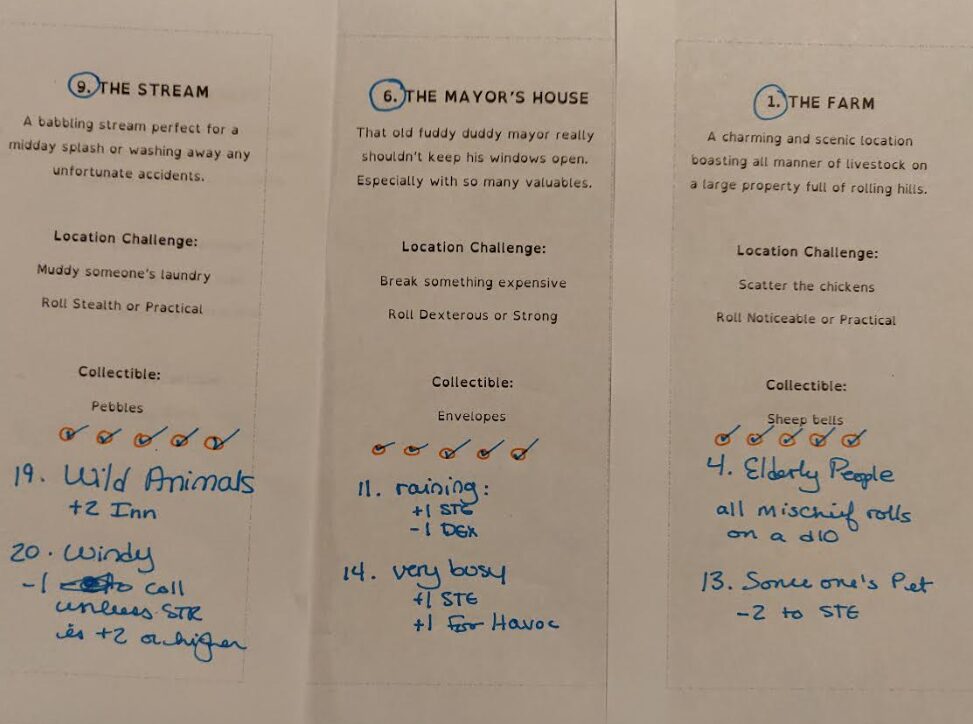 9. THE STREAM
A babbling stream perfect for a
midday splash or washing away any
unfortunate accidents.
Location Challenge:
Muddy someone's laundry
Roll Stealth or Practical
Collectible:
Pebbles
19. Wild Animals
+2 Inn
20. Windy
-1 to coll
unless STR
is +2 or higher
6. THE MAYOR'S HOUSE
That old fuddy duddy mayor really
shouldn't keep his windows open.
Especially with so many valuables.
Location Challenge:
Break something expensive
Roll Dexterous or Strong
Collectible:
Envelopes
11. raining:
+1 STE
-1 DEX
14. very busy
+1 STE
+1 For Havoc
1. THE FARM
A charming and scenic location
boasting all manner of livestock on
a large property full of rolling hills.
Location Challenge:
Scatter the chickens
Roll Noticeable or Practical
Collectible:
Sheep bells
4. Elderly People
all mischief rolls
on a d10
13. Someone's Pet
-2 to STE